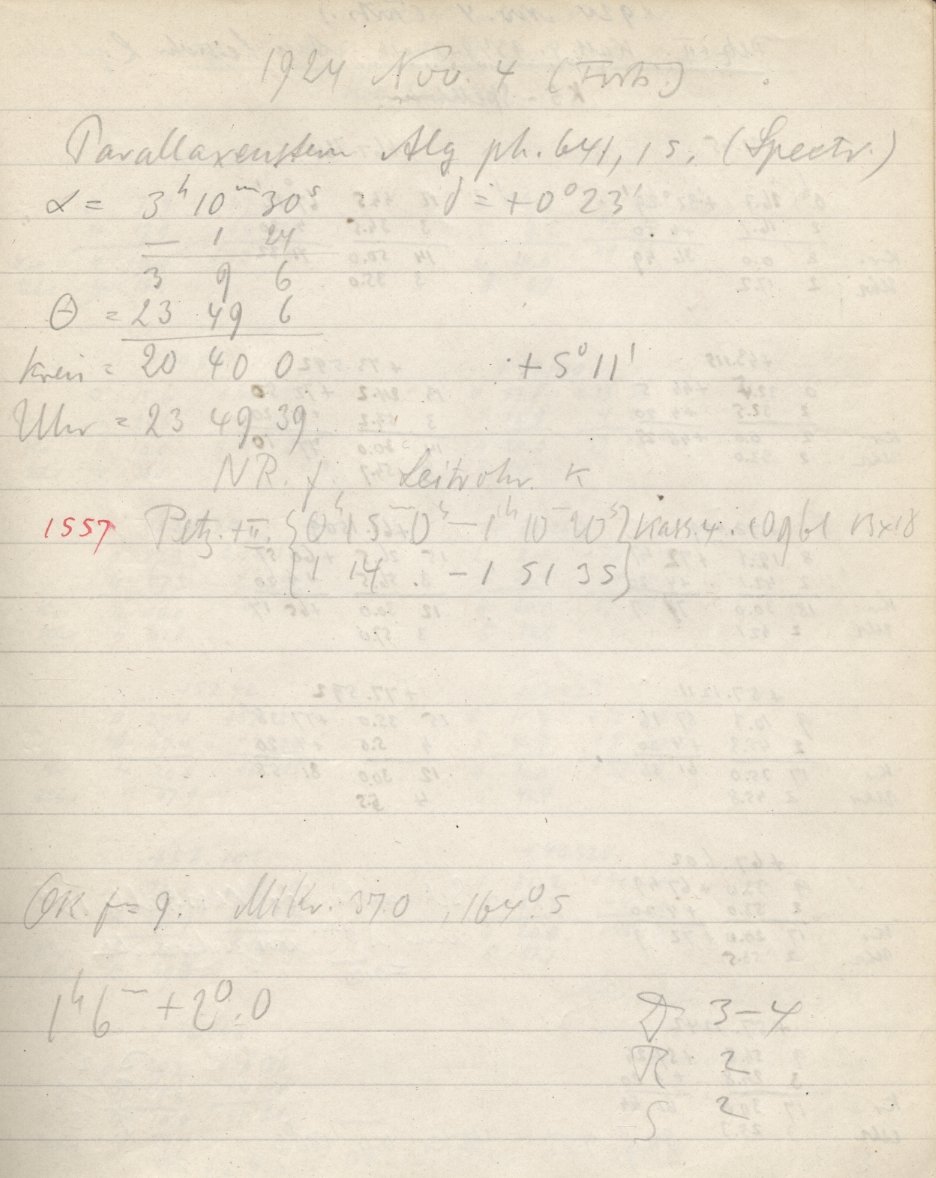 1924 Nov. 4 (Forts.)
Parallaxenstern Alg ph. 641, 1 s. (Spectr.)
α = 3ʰ 10ᵐ 30ˢ δ = +0° 23'
– 1 24
3 9 6
Θ = 23 49 6
Kreis = 20 40 0 +5° 11'
Uhr = 23 49 39
NR. f. Leitrohr. K
1557 Petz. + II. {0ʰ 15ᵐ 0ˢ – 1ʰ 10ᵐ 20ˢ} Kass. 4. 13x18
{1 14 – 1 51 35}
OK. f = 9. Mikr. 37.0, 164°.5
1ʰ 6ᵐ +2°.0
D 3–4
R 2
S 2